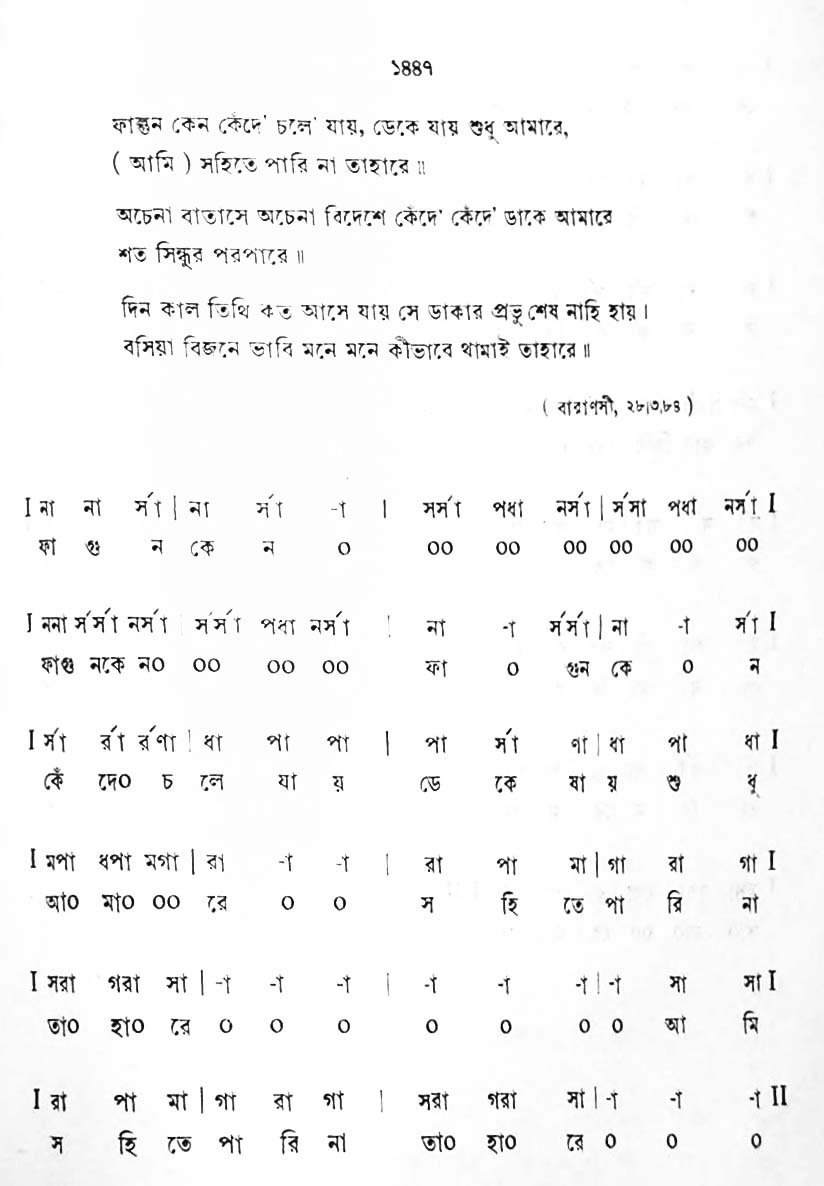 ১৪৪৭
ফাল্গুন কেন কেঁদে' চলে' যায়, ডেকে যায় শুধু আমারে,
( আমি ) সহিতে পারি না তাহারে ॥
অচেনা বাতাসে অচেনা বিদেশে কেঁদে' কেঁদে' ডাকে আমারে
শত সিন্ধুর পরপারে ॥
দিন কাল তিথি কত আসে যায় সে ডাকার প্রভু শেষ নাহি হায় ।
বসিয়া বিজনে ভাবি মনে মনে কীভাবে থামাই তাহারে ॥
( বারাণসী, ২৮।৩.৮৪ )
I না না র্সা | না র্সা -া | সর্সা পধা নর্সা | র্সসা পধা নর্সা I
ফা গু ন কে ন ০ ০০ ০০ ০০ ০০ ০০ ০০
I ননা র্সর্সা নর্সা | র্সর্সা পধা নর্সা | না -া র্সর্সা | না -া র্সা I
ফাগু নকে ন০ ০০ ০০ ০০ ফা ০ গুন কে ০ ন
I র্সা র্রা র্রণা | ধা পা পা | পা র্সা ণা | ধা পা ধা I
কেঁ দে০ চ লে যা য় ডে কে যা য় শু ধু
I মপা ধপা মগা | রা -া -া | রা পা মা | গা রা গা I
আ০ মা০ ০০ রে ০ ০ স হি তে পা রি না
I সরা গরা সা | -া -া -া | -া -া -া | -া সা সা I
তা০ হা০ রে ০ ০ ০ ০ ০ ০ ০ আ মি
I রা পা মা | গা রা গা | সরা গরা সা | -া -া -া II
স হি তে পা রি না তা০ হা০ রে ০ ০ ০